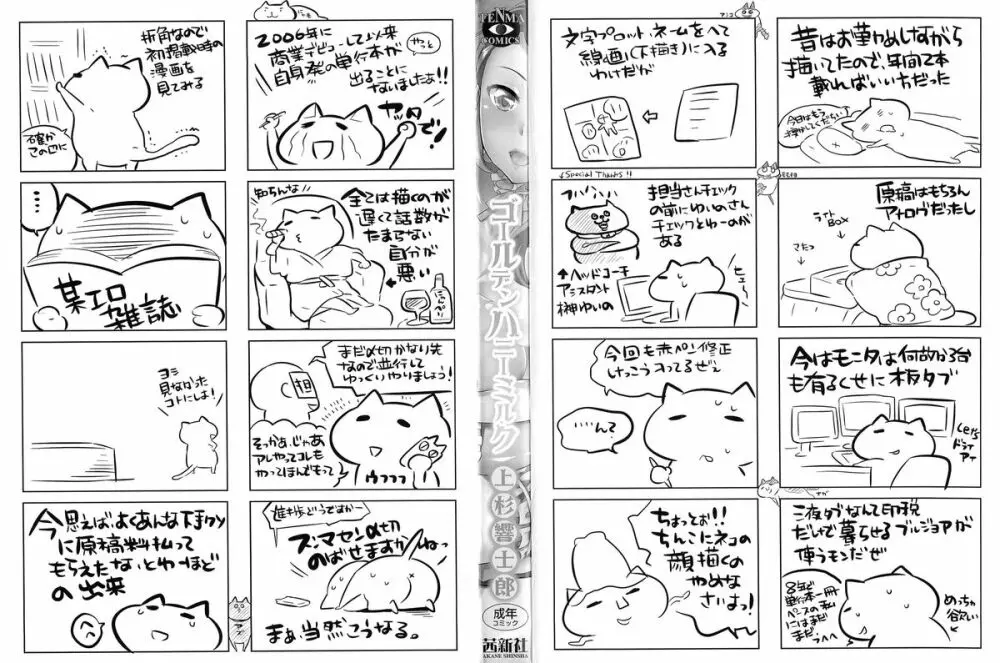 昔はお勤めしながら
描いてたので、年間2本
載ればいい方だった
今日はもう
原稿はもちろん
アナログだったし
ライト
BOX
こたつ
今はモニタは何故か3台
も有るくせに板タブ
液タブなんて印税
だけで暮らせるブルジョアが
使うモンだぜ
8年で
単行本一冊
ペースの私
にはまだ
まだっへへ
めっちゃ
欲しい
アシコ
文字プロット、ネームをへて
線画(下描き)に入る
わけだが
↓Special Thanks!!
担当さんチェック
の前にゆいのさん
チェックとゆーのがある
↑ヘッドコーチ
アシスタント
榊ゆいの
ヒュ〜
今回も赤ペン修正
けっこう入ってるぜぇ
……んて
ちょっとぉ!!
ちんこにネコの
顔描くの
やめな
さいよっ!
TENMA
COMICS
ゴールデンハニーミルク
上杉響士郎
成年
コミック
茜新社
AKANE SHINSHA
2006年に
商業デビューして以来
やっと
自身発の単行本が
出ることに
なりましたぁ!!
ヤッタ
で!
知らんな
全ては描くのが
遅くて話数が
たまらない
自分が
悪い
まだ〆切かなり先
なので並行して
ゆっくりやりましょう!
担
そっかぁ、じゃあ
アレやってコレも
やってほんでもって
ウフフフ
進捗どうですかー
ズマセン〆切
のばせますかねっ
まぁ当然こうなる。
折角なので
初掲載時の
漫画を
見てみる
確か
この辺に
…
某エロ
雑誌
ヨシ
見なかった
コトにしよ!
今思えばよくあんな下手クソ
に原稿料払って
もらえたなぁとゆーほど
の出来
へへ